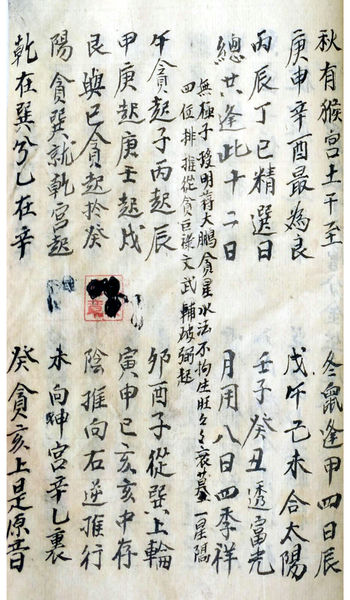 秋有猴宮土干至　冬鼠逢甲四日辰
庚申辛酉最為良　戊午己未合太陽
丙辰丁巳精選日　壬子癸丑透富光
總共逢此十二日　月用八日四季祥
無極子　授明蔣大鵬貪星水法不拘生旺々衰墓一星隔
四位排　推從貪巨祿文武輔破弼起
午貪起子丙起辰　卯酉子從巽上輪
甲庚起庚壬起戌　寅申巳亥亥中存
艮與巳貪起於癸　陰推向右逆推行
陽貪巽就乾宮起　未向坤宮辛乙裏
乾在巽兮乙在辛　癸貪亥上是原音